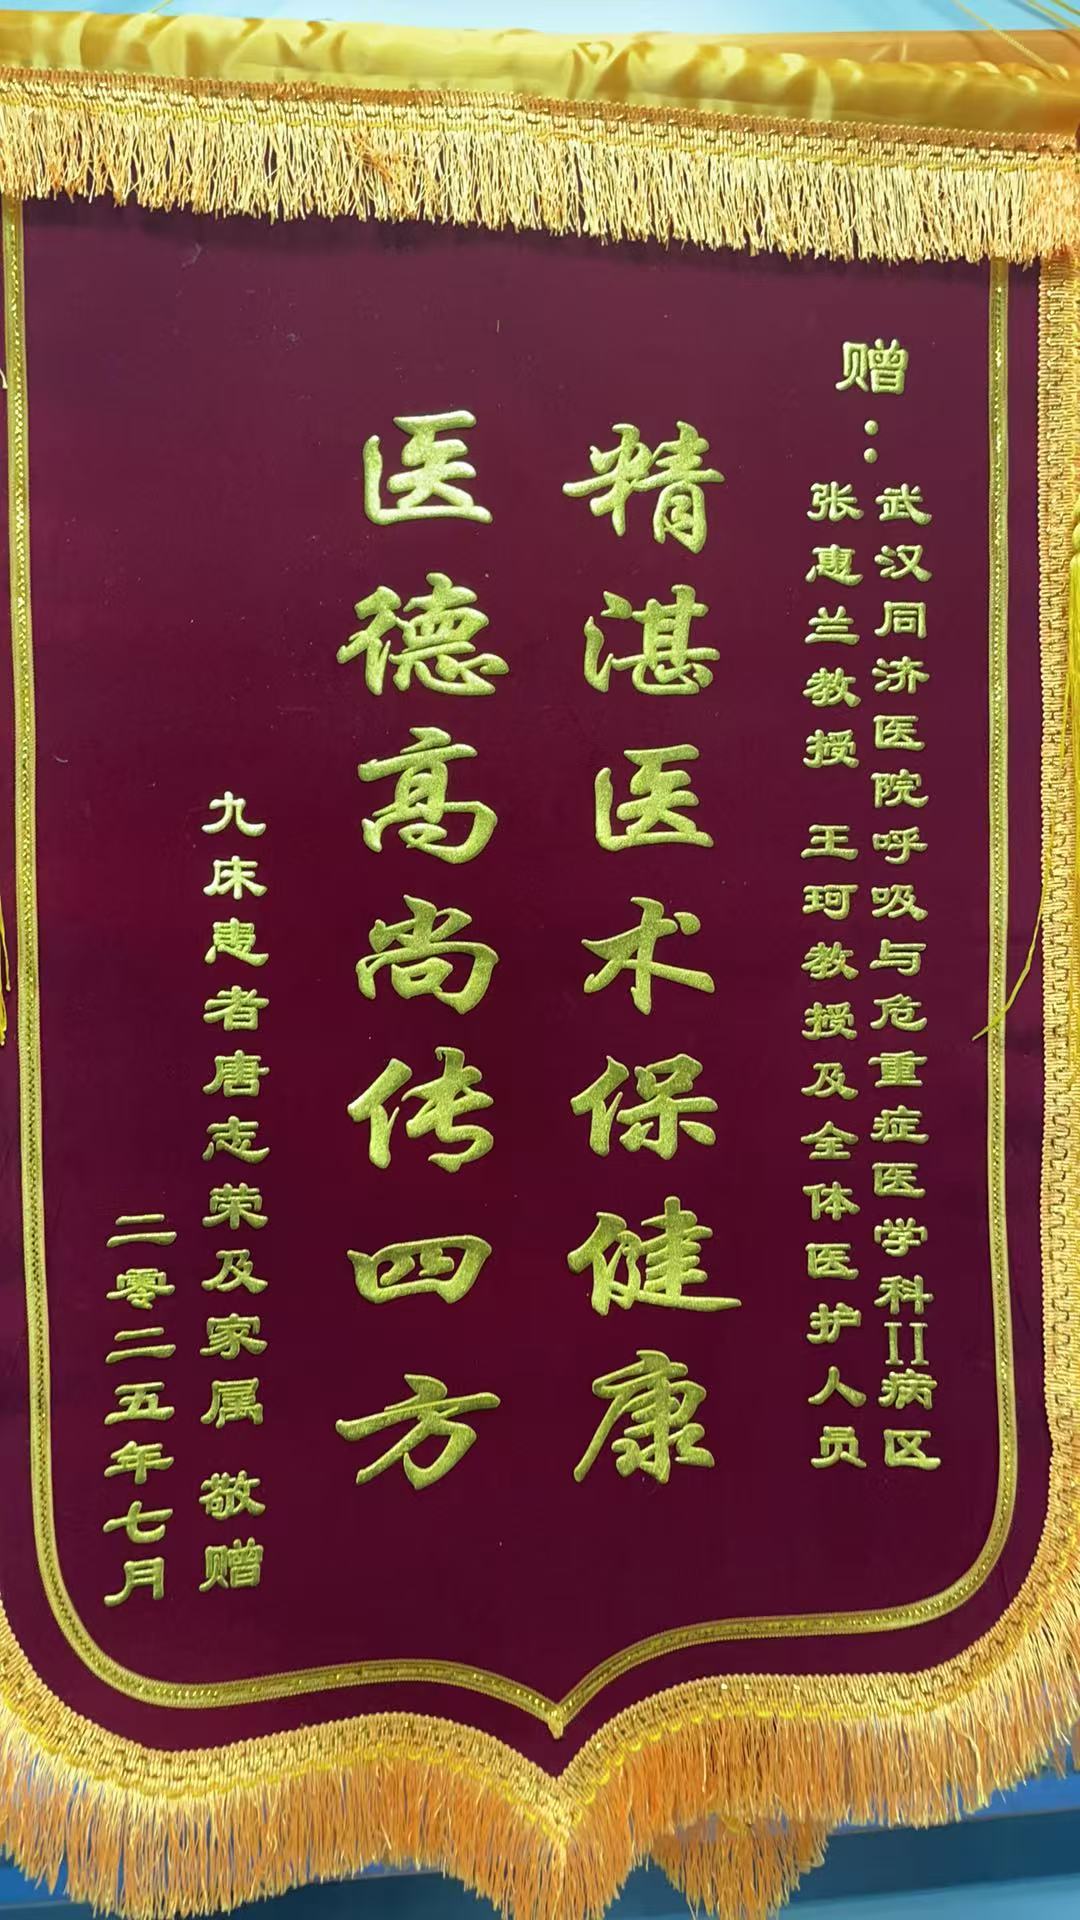 赠：
武汉同济医院呼吸与危重症医学科II病区
张惠兰教授 王珂教授及全体医护人员
精湛医术保健康
医德高尚传四方
九床患者唐志荣及家属 敬赠
二零二五年七月